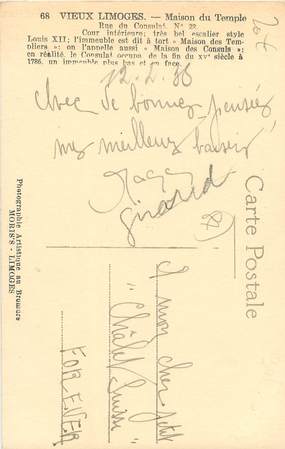 68 VIEUX LIMOGES. — Maison du Temple
Rue du Consulat, N° 22
Cour intérieure; très bel escalier style
Louis XII; l'immeuble est dit à tort « Maison des Tem-
pliers »: on l'appelle aussi « Maison des Consuls »;
en réalité, le Consulat occupa, de la fin du XVe siècle à
1786, un immeuble plus bas et en face.
Avec de bonnes pensées
mes meilleurs baisers
Girard
87
Carte Postale
Photographie Artistique au Bromure
MORIS'S - LIMOGES
A mon cher petit
" Châlet Suisse "
FOR EVER